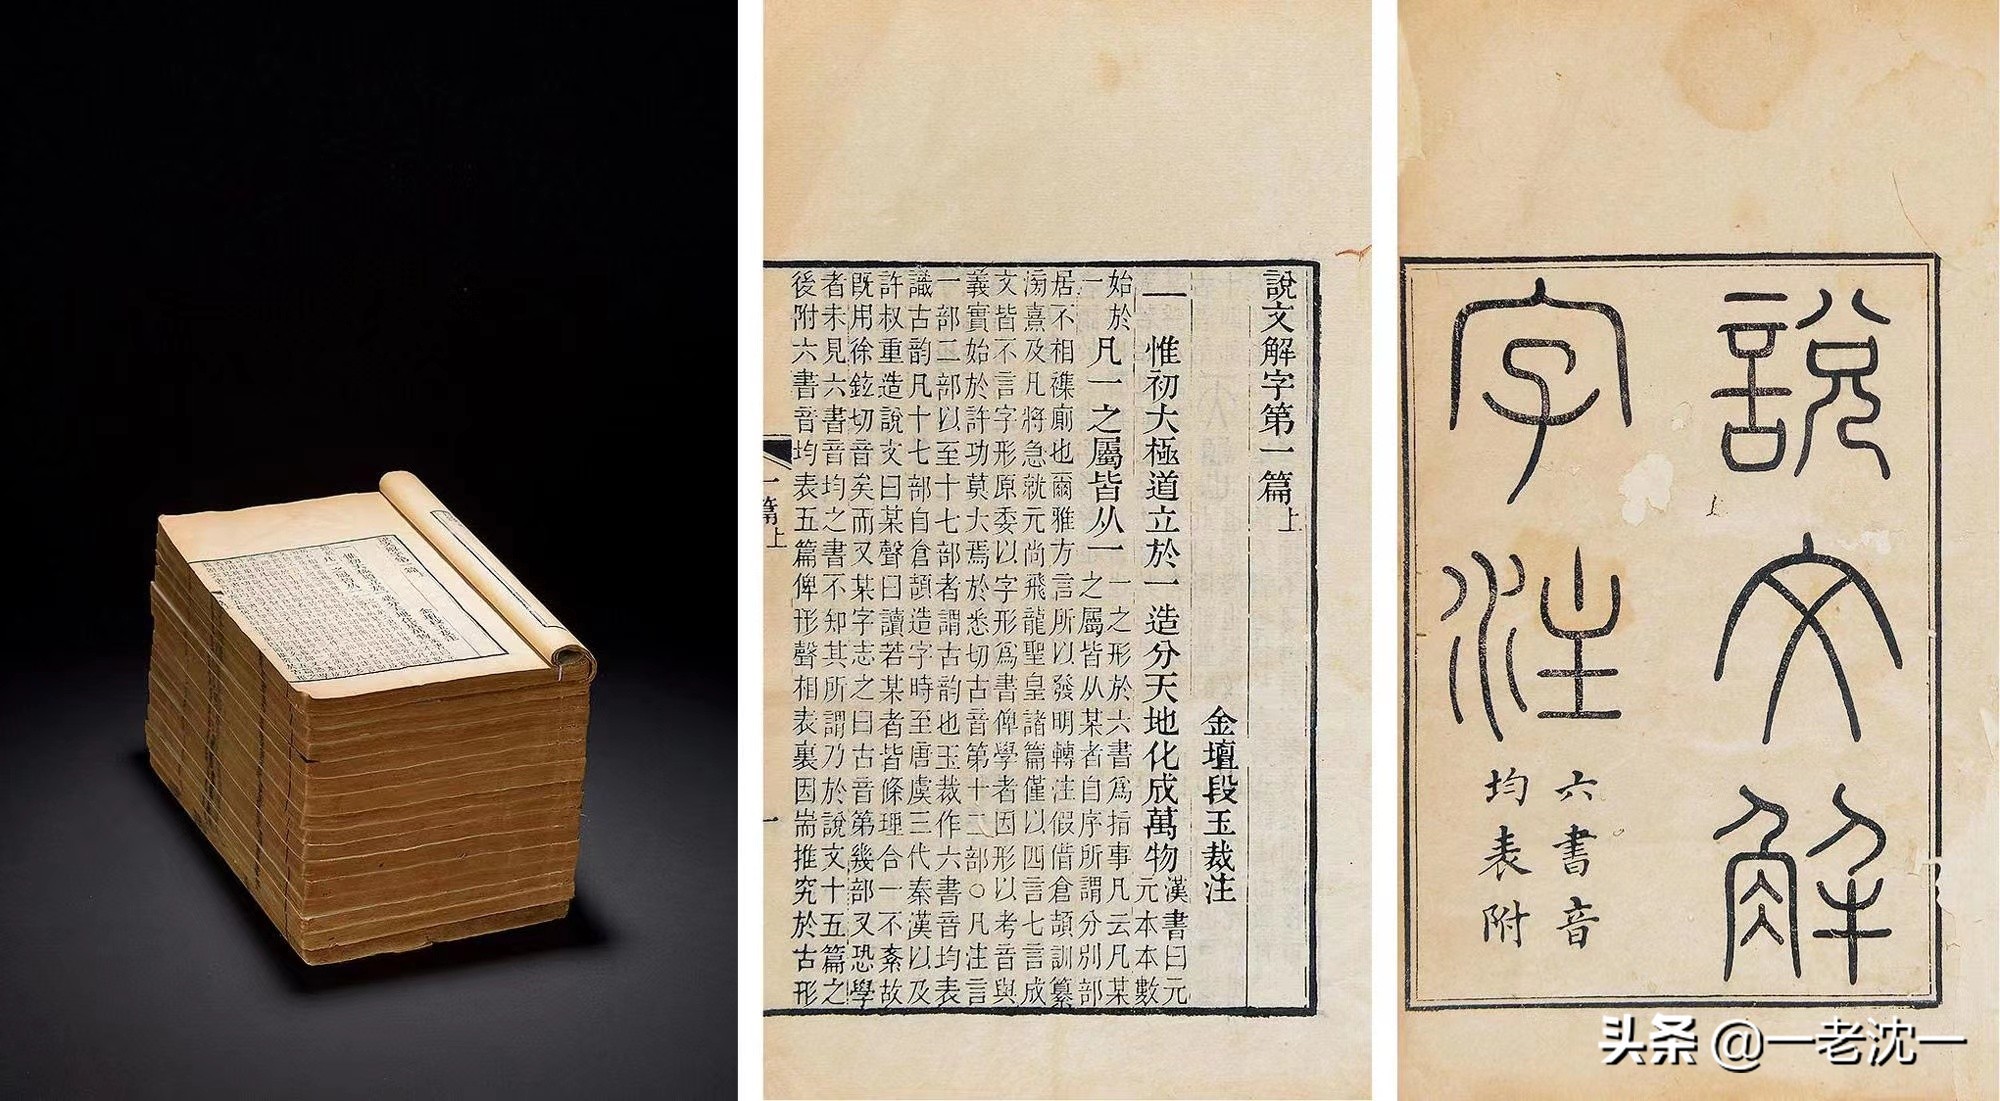 說文解字第一篇上
金壇段玉裁注
一 惟初大極道立於一造分天地化成萬物漢書曰元元本本數
始於一凡一之屬皆从一一之形於六書爲指事凡云凡某之屬皆从某者自序所謂分別部
居不相襍廁也爾雅方言所以發明轉注假借倉頡訓纂
滂熹及凡將急就元尚飛龍聖皇諸篇僅以四言七言成
文皆不言字形原委以字形爲書俾學者因形以考音與
義實始於許功莫大焉於悉切古音第十二部○凡注言
一部二部以至十七部者謂古韵也玉裁作六書音均表
識古韵凡十七部自倉頡造字時至唐虞三代秦漢以及
許叔重造說文曰某聲曰讀若某者皆條理合一不紊故
既用徐鉉切音矣而又某字志之曰古音第幾部又恐學
者未見六書音均之書不知其所謂乃於說文十五篇之
後附六書音均表五篇俾形聲相表裏因耑推究於古形
一篇上
一
說文解
字注
六書音
均表附
头条 @一老沈一